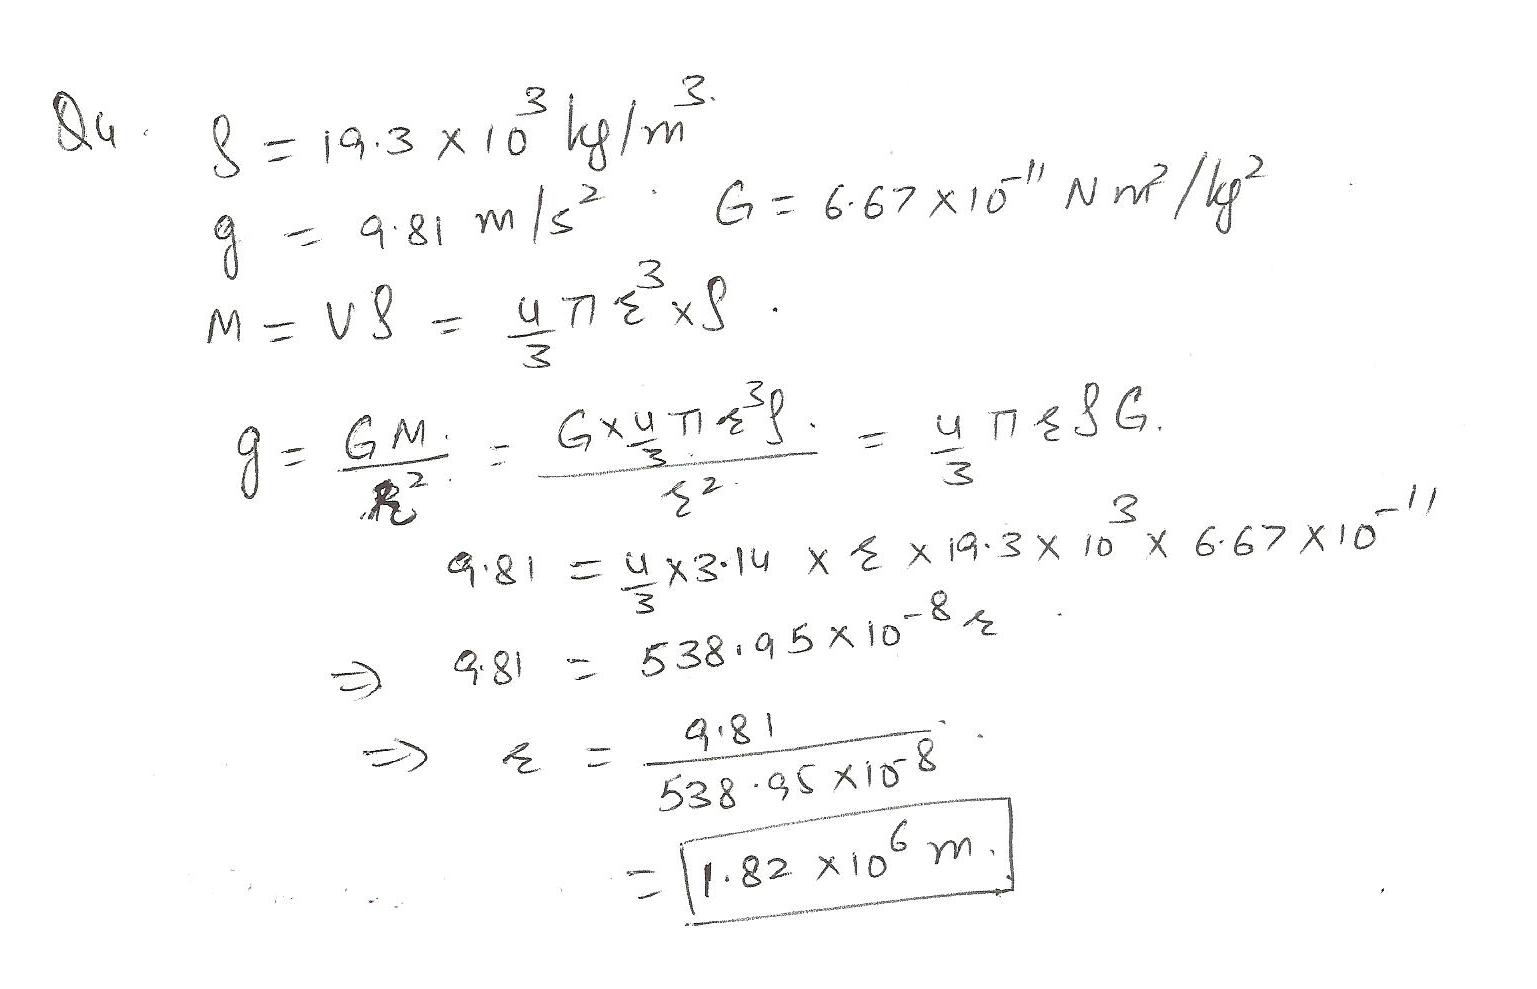 Q4. ρ = 19.3 × 10³ kg/m³.
g = 9.81 m/s². G = 6.67 × 10⁻¹¹ N m²/kg²
M = Vρ = 4/3 π r³ × ρ.
g = GM/r² = G × 4/3 π r³ρ / r² = 4/3 π r ρ G.
9.81 = 4/3 × 3.14 × r × 19.3 × 10³ × 6.67 × 10⁻¹¹
⇒ 9.81 = 538.95 × 10⁻⁸ r
⇒ r = 9.81 / 538.95 × 10⁻⁸
= 1.82 × 10⁶ m.